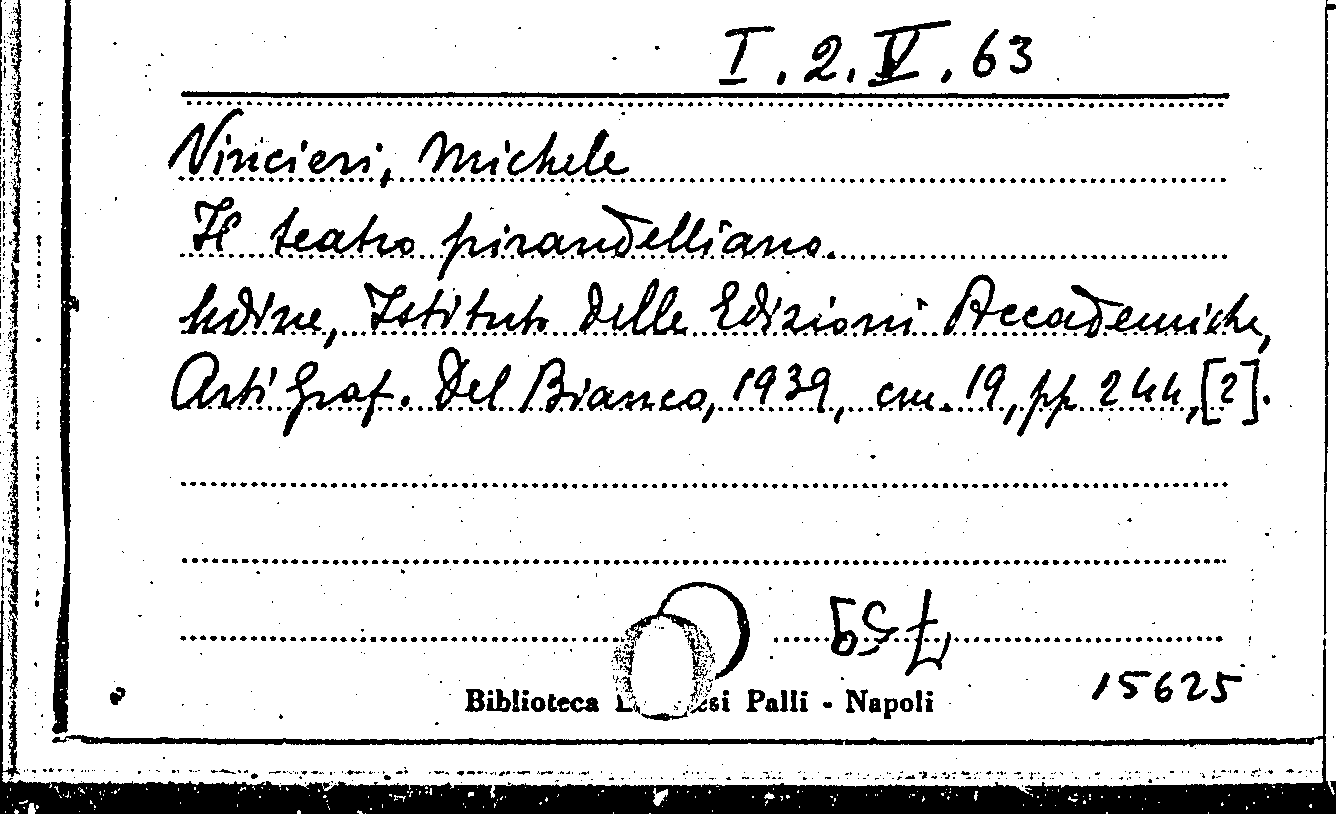 I.2.V.63
Vincieri, Michele
Il teatro pirandelliano.
Udine, Istituto delle Edizioni Accademiche,
Arti Graf. Del Bianco, 1939, cm. 19, pp 244, [2].
15625
Biblioteca Palli - Napoli